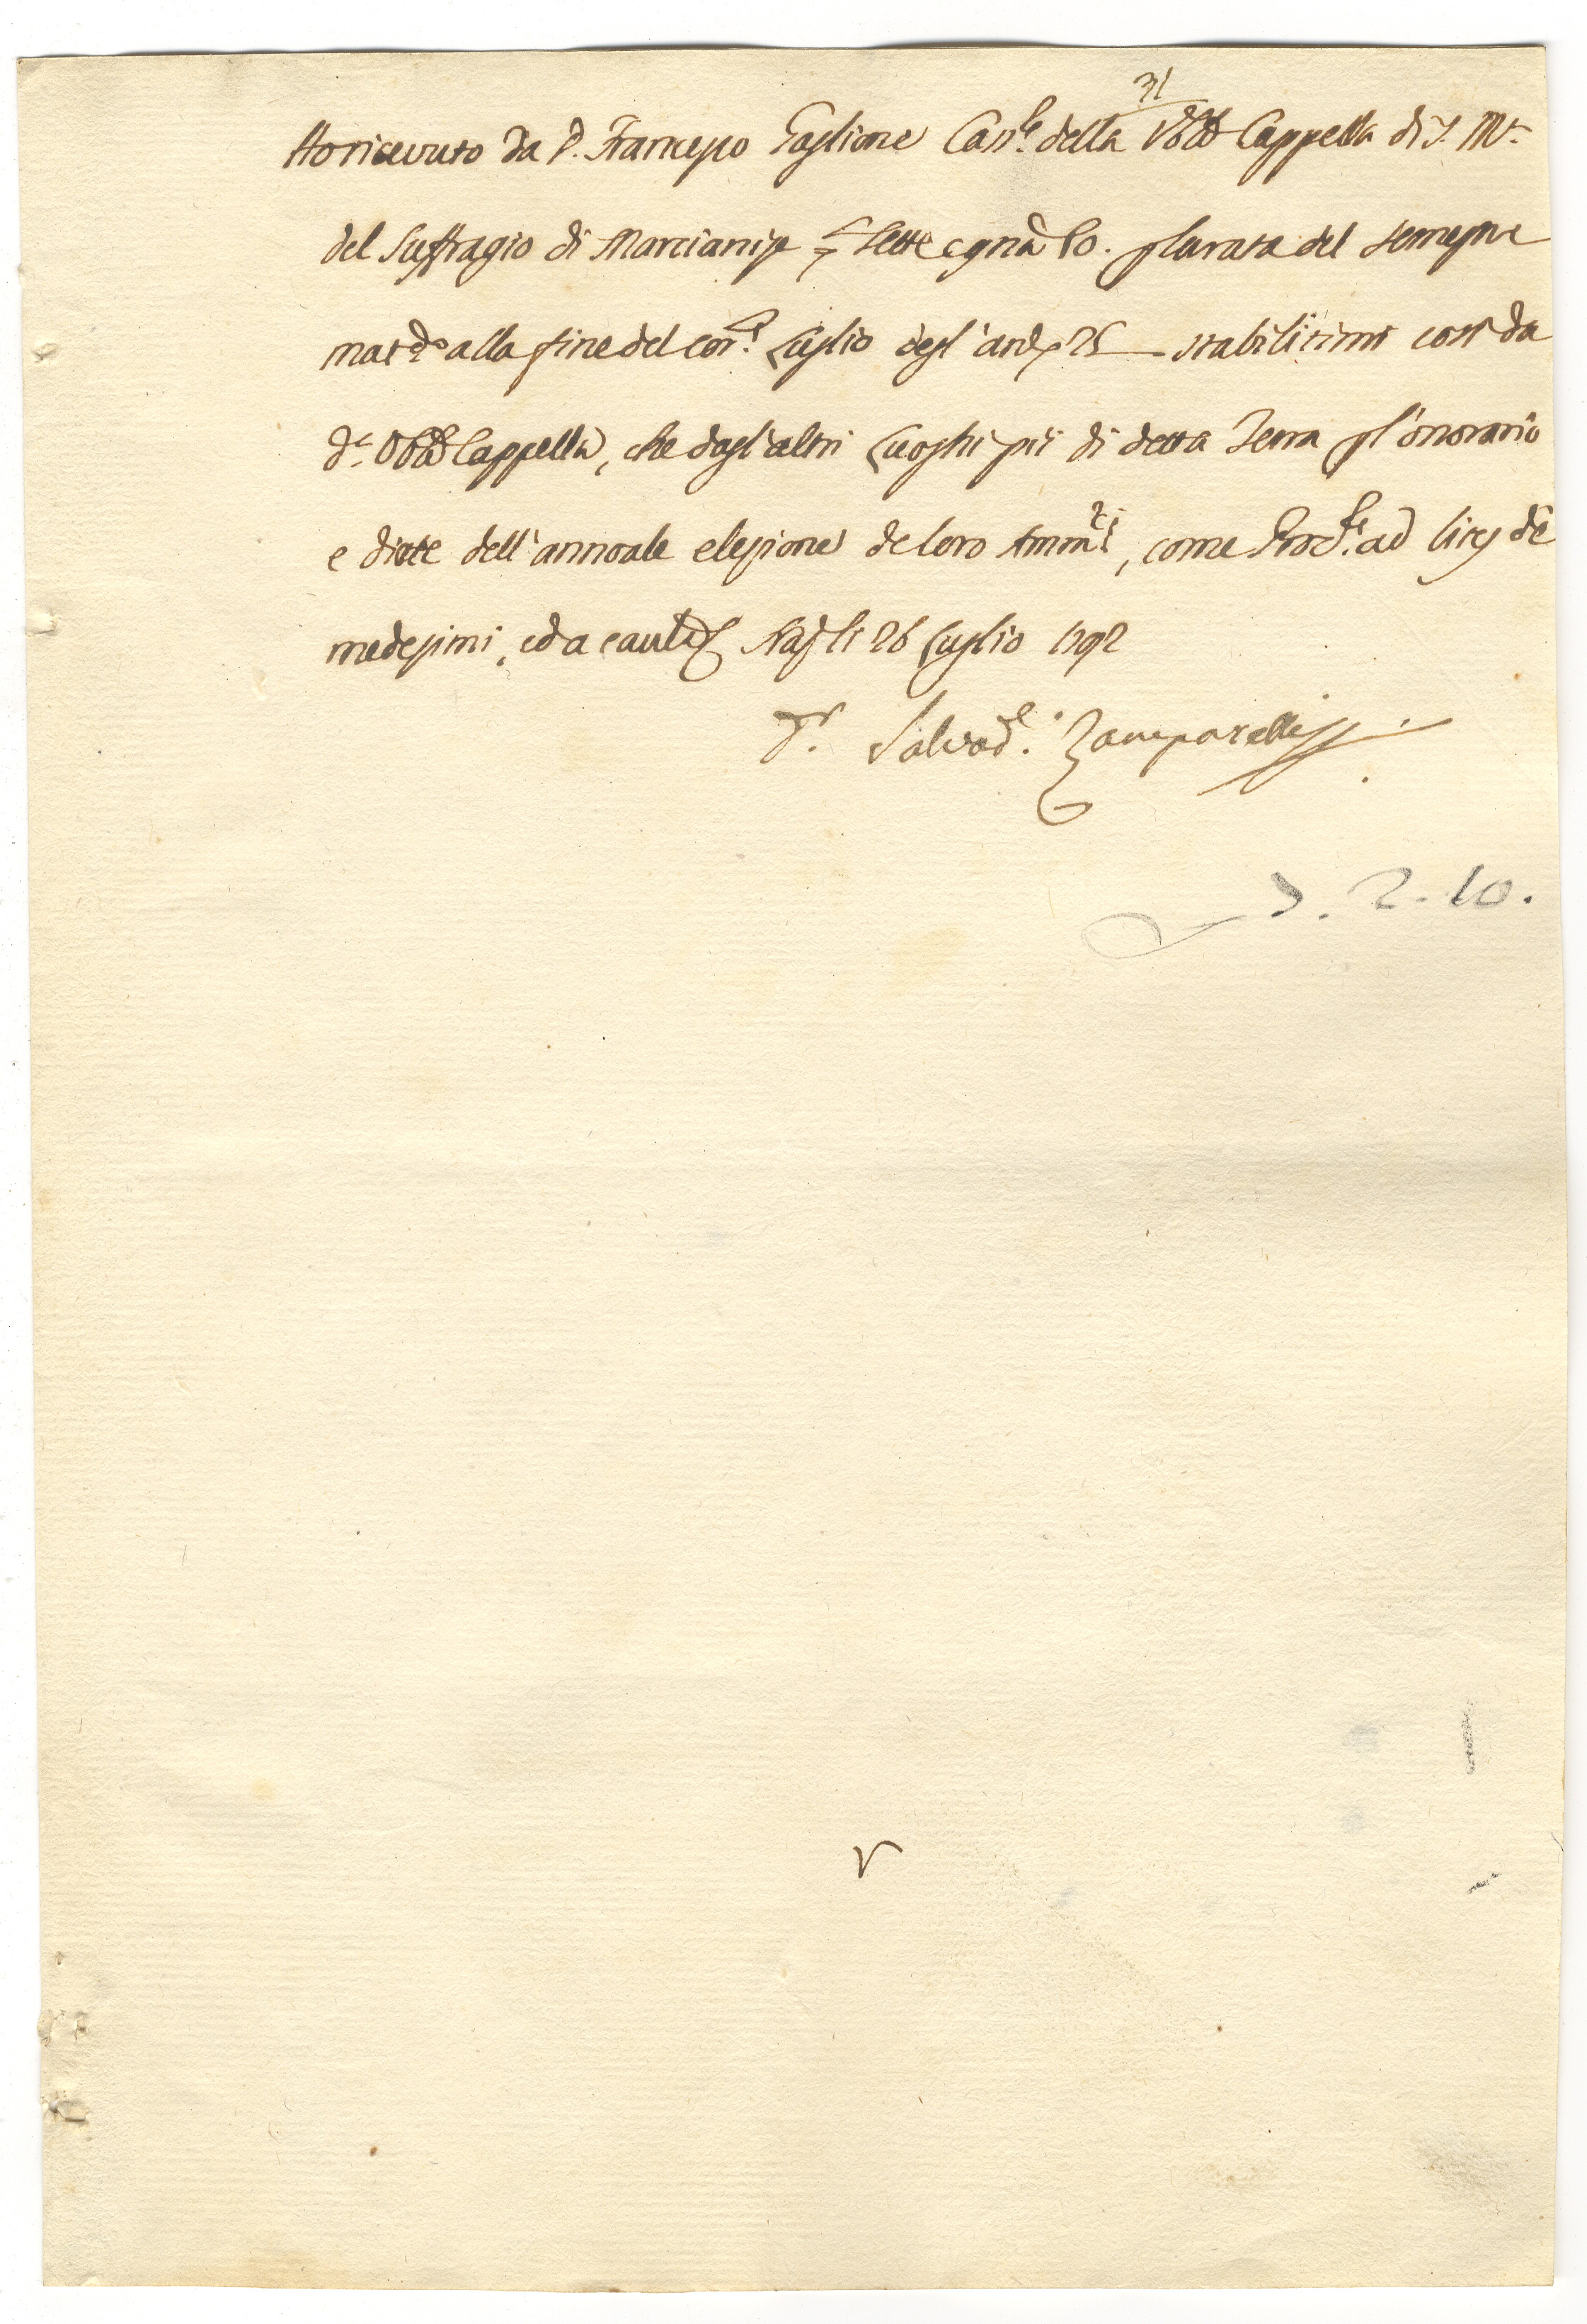 31
Ho ricevuto da D. Francesco Foglione Cass.re della Ven.le Cappella di S. M.a
del Suffragio di Marcianise sette e grana 10. p la rata del semestre
mat.do alla fine del cor.te Luglio degl'an. 25 stabilitimi così da
d.a Cappella, che dagl'altri Luoghi pii di detta Terra p l'onorario
e diete dell'annoale elezione de loro Amm.ri, come Proc.re ad lites de
medesimi, ed a cautela Nap. li 26 Luglio 1792
D.r Salvad.e Zamparelli
7. 2. 10.
V